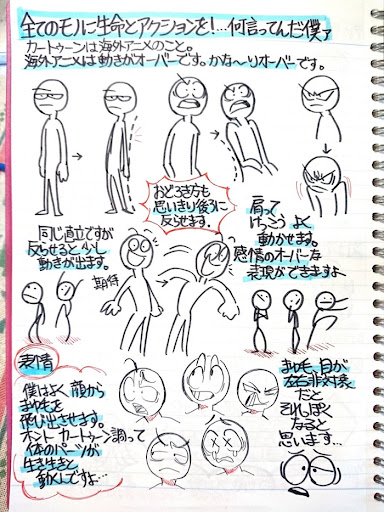 全てのモノに生命とアクションを!…何言ってんだ僕ァ
カートゥーンは海外アニメのこと。
海外アニメは動きがオーバーです。かな〜りオーバーです。
同じ直立ですが
反らせると少し
動きが出ます。
おどろき方も
思いきり後ろに
反らせます。
肩って
けっこう よく
動かせます。
感情のオーバーな
表現ができますよ
期待
表情
僕はよく顔から
まゆ毛を
飛び出させます。
ホント カートゥーン調って
体のパーツが
生き生きと
動くしですよ…
まゆ毛、目が
左右非対称
だと
それっぽく
なると
思います…